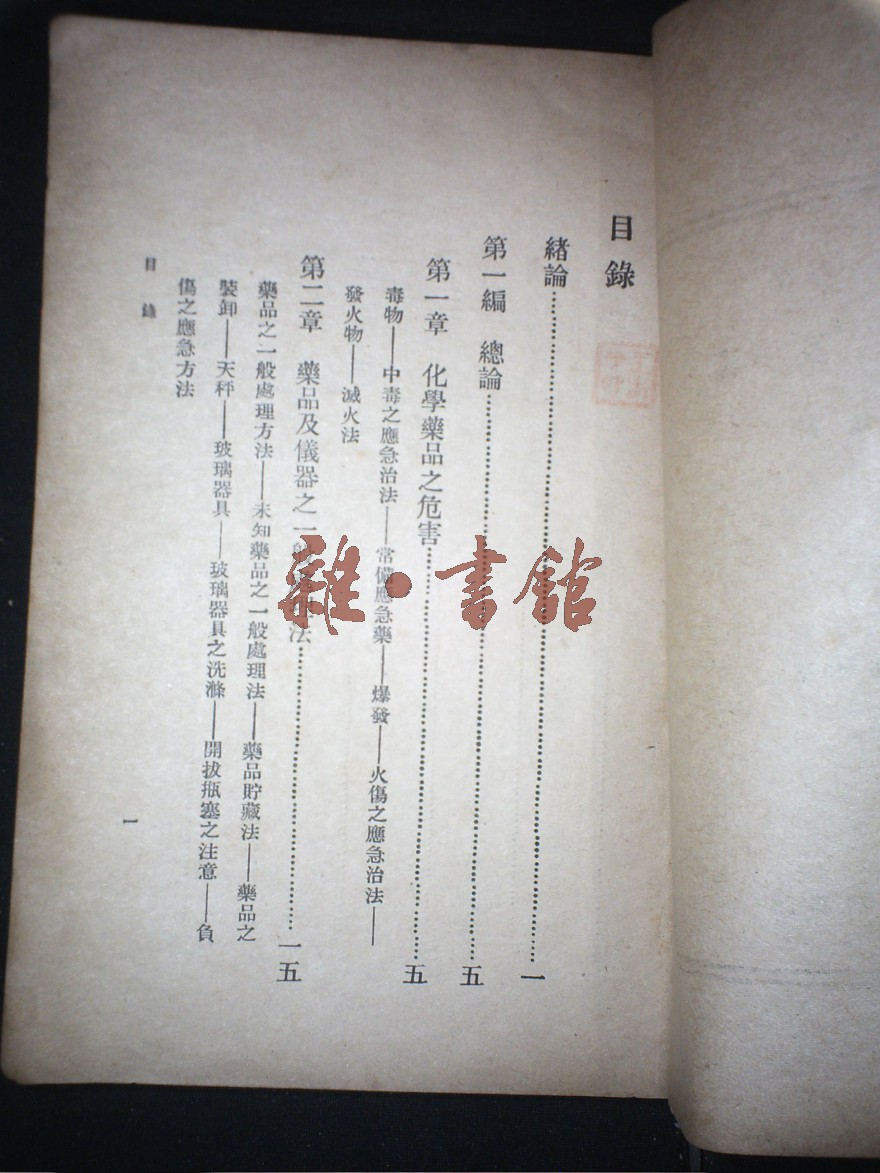 目錄
緒論……一
第一編 總論……五
第一章 化學藥品之危害……五
毒物——中毒之應急治法——常備應急藥——爆發——火傷之應急治法——
發火物——滅火法
第二章 藥品及儀器之一般法……一五
藥品之一般處理方法——未知藥品之一般處理法——藥品貯藏法——藥品之
裝卸——天秤——玻璃器具——玻璃器具之洗滌——開拔瓶塞之注意——負
傷之應急方法
目錄
一
雜·書館